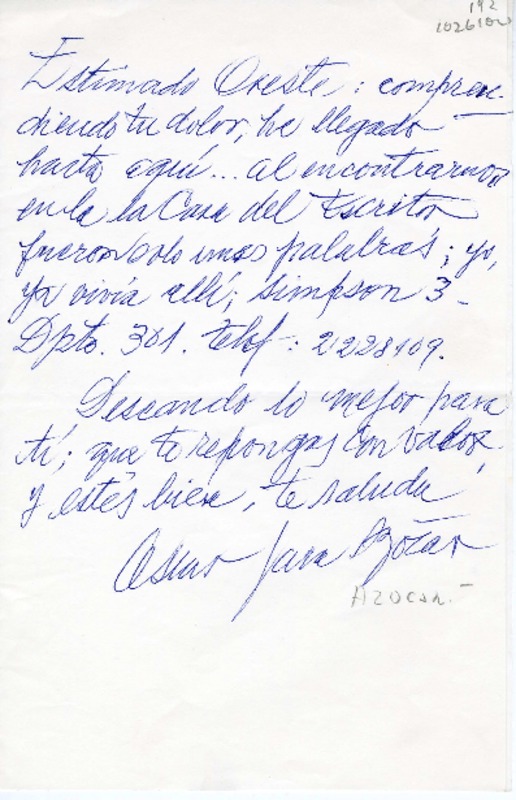 192
Estimado Oreste: compren-
diendo tu dolor, he llegado
hasta aquí... al encontrarnos
en la la Casa del Escritor
fueron solo unas palabras; yo,
ya vivía allí; Simpson 3 -
Dpto. 301. telf: 2228109.
Deseando lo mejor para
tí; que te repongas con valor
y estés bien, te saluda
Oscar Jara Azócar
Azocar.-